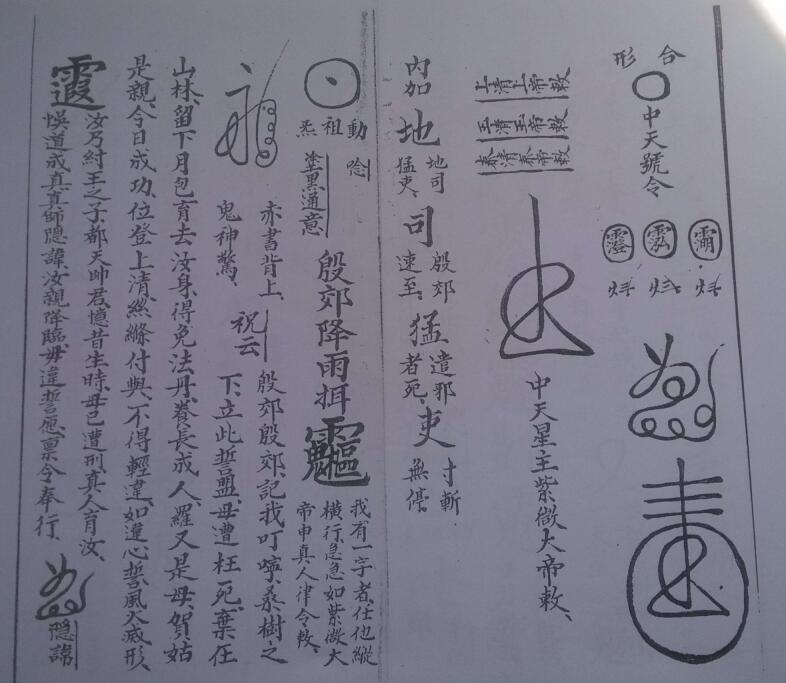 合形
中天號令
上清上帝敕
玉清玉帝敕
泰清泰帝敕
中天星主紫微大帝敕、
內加
地 地司猛吏、
司 殷郊速至、
猛 遣邪者死、
吏 寸斬無停、
動祖炁
唸
塗黑通意
殷郊降雨捐
我有一字者、任他縱
橫行、急急如紫微大
帝申真人律令敕、
赤書背上、
鬼神驚、
祝云
殷郊殷郊、記我叮嚀、桑樹之
下、立此誓盟、母遭枉死、棄在
山林、留下月包、育去汝身、得免法丹、養長成人、羅又是母、賀姑
是親、今日成功、位登上清、絲絛付與、不得輕違、如違心誓、風火滅形、
霞
汝乃紂王之子、都天帥君、憶昔生時、母已遭刑、真人育汝、
悞道成真、真師隱諱、汝親降臨、毋違誓愿、禀令奉行、
隱諱